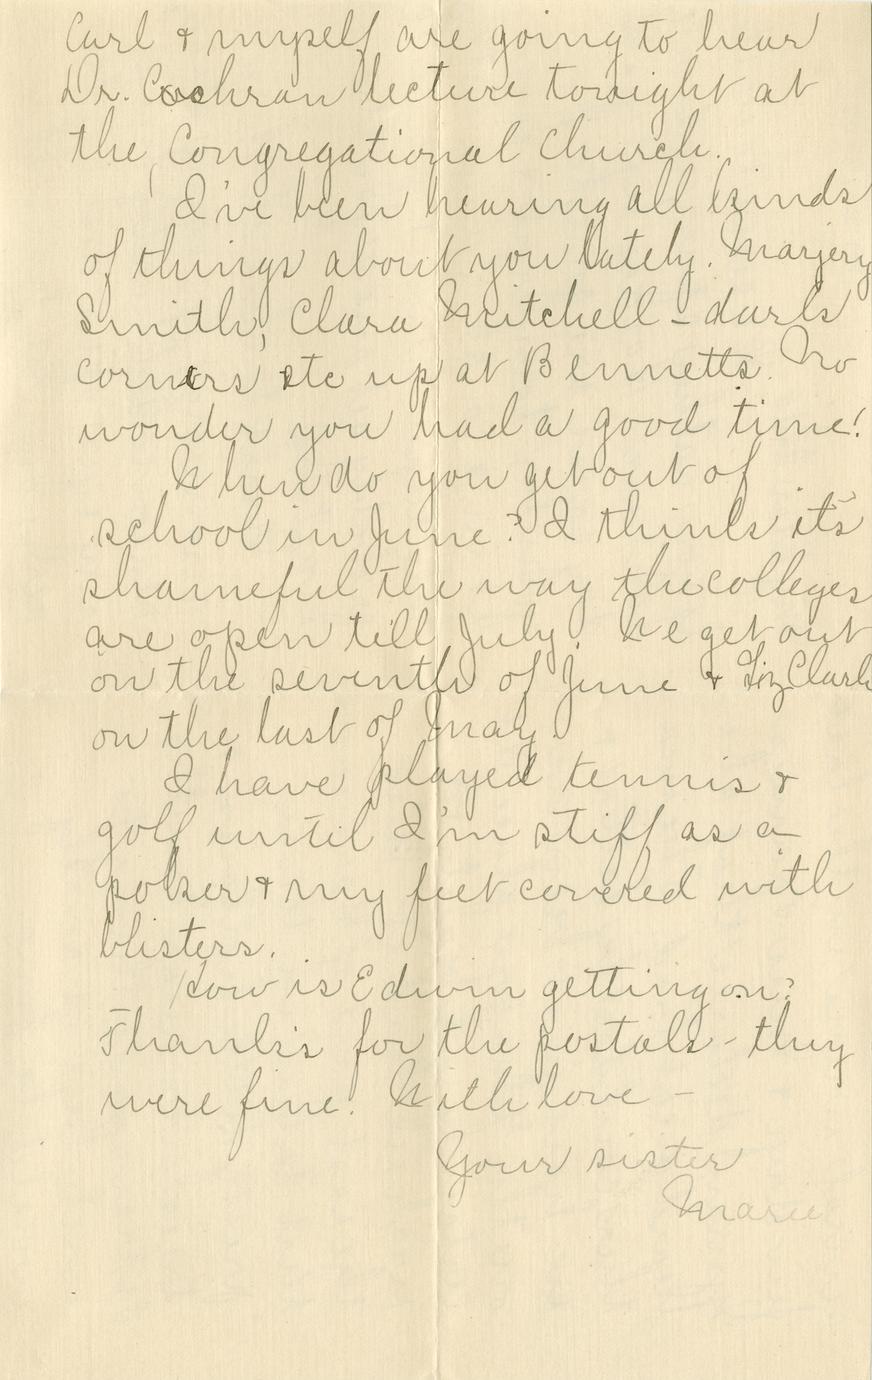 Carl & myself are going to hear
Dr. Cochran lecture tonight at
the Congregational Church.
I've been hearing all kinds
of things about you lately. Marjery
Smith, Clara Mitchell - dark
corners etc up at Bennetts. No
wonder you had a good time!
When do you get out of
school in June? I think it's
shameful the way the colleges
are open till July. We get out
on the seventh of June & Liz Clark
on the last of May.
I have played tennis &
golf until I'm stiff as a
poker & my feet covered with
blisters.
How is Edwin getting on?
Thanks for the postals - they
were fine. With love -
Your sister
Marie